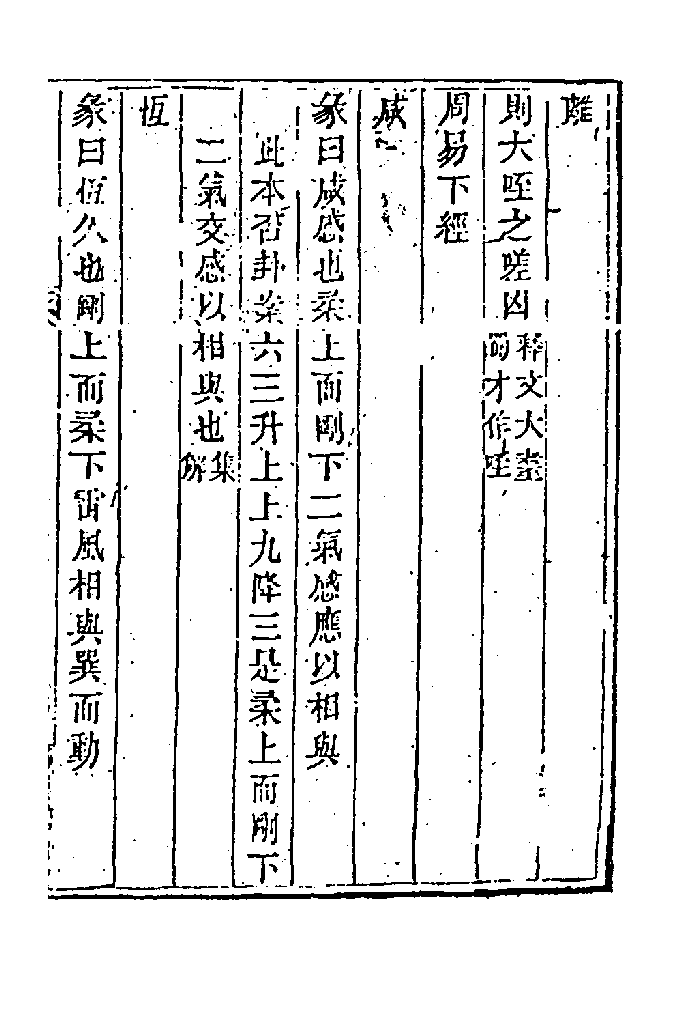 離
則大咥之嗟凶釋文大耋蜀才作咥
周易下經
咸
彖曰咸感也柔上而剛下二氣感應以相與
此本否卦案六三升上上九降三是柔上而剛下
二氣交感以相與也集解
恆
彖曰恆久也剛上而柔下雷風相與巽而動